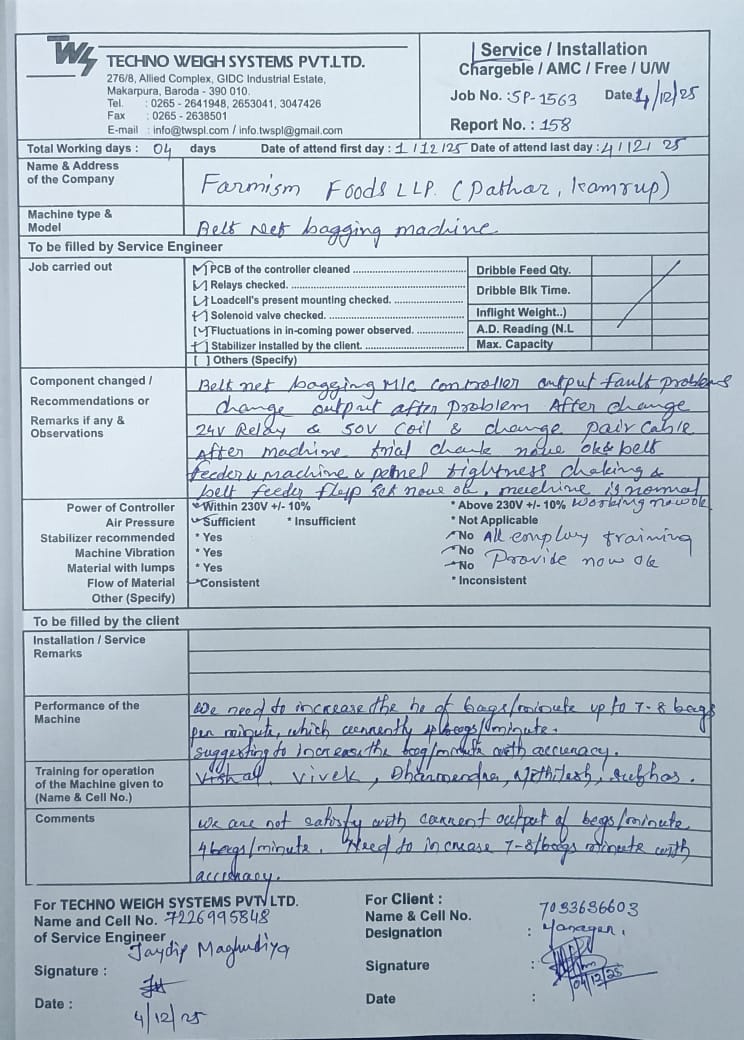 TWS
TECHNO WEIGH SYSTEMS PVT.LTD.
276/8, Allied Complex, GIDC Industrial Estate,
Makarpura, Baroda - 390 010.
Tel. : 0265 - 2641948, 2653041, 3047426
Fax : 0265 - 2638501
E-mail : info@twspl.com / info.twspl@gmail.com
Service / Installation
Chargeble / AMC / Free / U/W
Job No. : SP-1563 Date 4/12/25
Report No. : 158
Total Working days : 04 days Date of attend first day : 1/12/25 Date of attend last day : 4/12/25
Name & Address
of the Company
Farmism Foods LLP. (Pathar, kamrup)
Machine type &
Model
Belt Net bagging machine
To be filled by Service Engineer
Job carried out
PCB of the controller cleaned
Relays checked.
Loadcell's present mounting checked.
Solenoid valve checked.
Fluctuations in in-coming power observed.
Stabilizer installed by the client.
[ ] Others (Specify)
Dribble Feed Qty.
Dribble Blk Time.
Inflight Weight..)
A.D. Reading (N.L
Max. Capacity
Component changed /
Recommendations or
Remarks if any &
Observations
Belt net bagging M/c controller output fault problems
change output after problem After change
24V Relay & 50V coil & change pair cable
After machine trial chank noue ok & belt
feeder & machine & pennel tightness chaking &
belt feeder flep set noue ok, meechine is normal
working now ok
Power of Controller * Within 230V +/- 10% * Above 230V +/- 10%
Air Pressure * Sufficient * Insufficient * Not Applicable
Stabilizer recommended * Yes No All compluy training
Machine Vibration * Yes No
Material with lumps * Yes No Provide now ok
Flow of Material Consistent * Inconsistent
Other (Specify)
To be filled by the client
Installation / Service
Remarks
Performance of the
Machine
We need to increase the no of bags/minute up to 7-8 bags
per minute, which currently 4 bags/minute.
suggesting to increase the bag/minute with accuracy.
Training for operation
of the Machine given to
(Name & Cell No.)
Vishal, Vivek, Dharmendra, Mithilesh, Subhas.
Comments
We are not satisfy with current output of begs/minute
4 bags/minute. Need to increase 7-8/bags minute with
accuracy.
For TECHNO WEIGH SYSTEMS PVT. LTD.
Name and Cell No. 7226995848
of Service Engineer
Jaydip Maghudiya
Signature :
Date :
4/12/25
For Client :
Name & Cell No. 7033636603
Designation : Manager.
Signature :
04/12/25
Date :